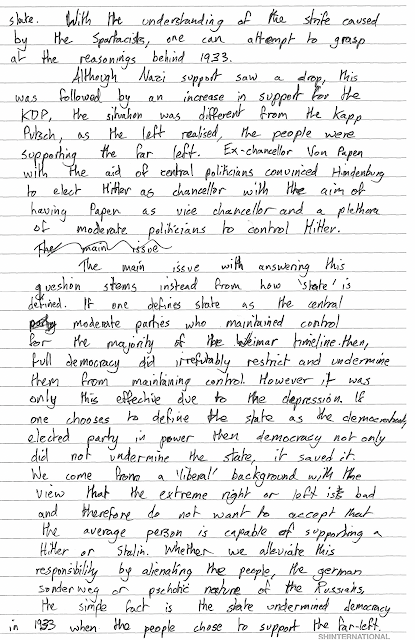 state. With the understanding of the strife caused
by the Spartacists, one can attempt to grasp
at the reasonings behind 1933.
Although Nazi support saw a drop, this
was followed by an increase in support for the
KDP, the situation was different from the Kapp
Putsch, as the left realised, the people were
supporting the far left. Ex-chancellor Von Papen
with the aid of central politicians convinced Hindenburg
to elect Hitler as chancellor with the aim of
having Papen as vice chancellor and a plethora
of moderate politicians to control Hitler.
The main issue
The main issue with answering this
question stems instead from how 'state' is
defined. If one defines state as the central
moderate parties who maintained control
for the majority of the Weimar timeline then,
full democracy did irrefutably restrict and undermine
them from maintaining control. However it was
only this effective due to the depression. If
one chooses to define the state as the
elected party in power then democracy not only
did not undermine the state, it saved it.
We come from a 'liberal' background with the
view that the extreme right or left is bad
and therefore do not want to accept that
the average person is capable of supporting a
Hitler or Stalin. Whether we alleviate this
responsibility by alienating the people, the german
sonderweg or pschotic nature of the Russians,
the simple fact is the state undermined democracy
in 1933 when the people chose to support the far-left.
SHINTERNATIONAL